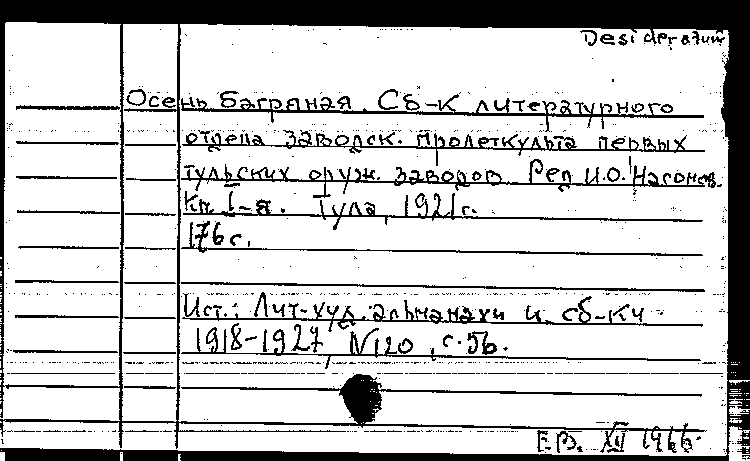 Desideratum
Осень багряная. Сб-к литературного
отдела заводск. пролеткульта первых
тульских оруж. заводов Ред И.О. Насонов.
Кн. I-я. Тула, 1921г.
176с.
Ист.: Лит-худ. альманахи и сб-ки
1918-1927, №120, с.56.
Е.В. XII 1966